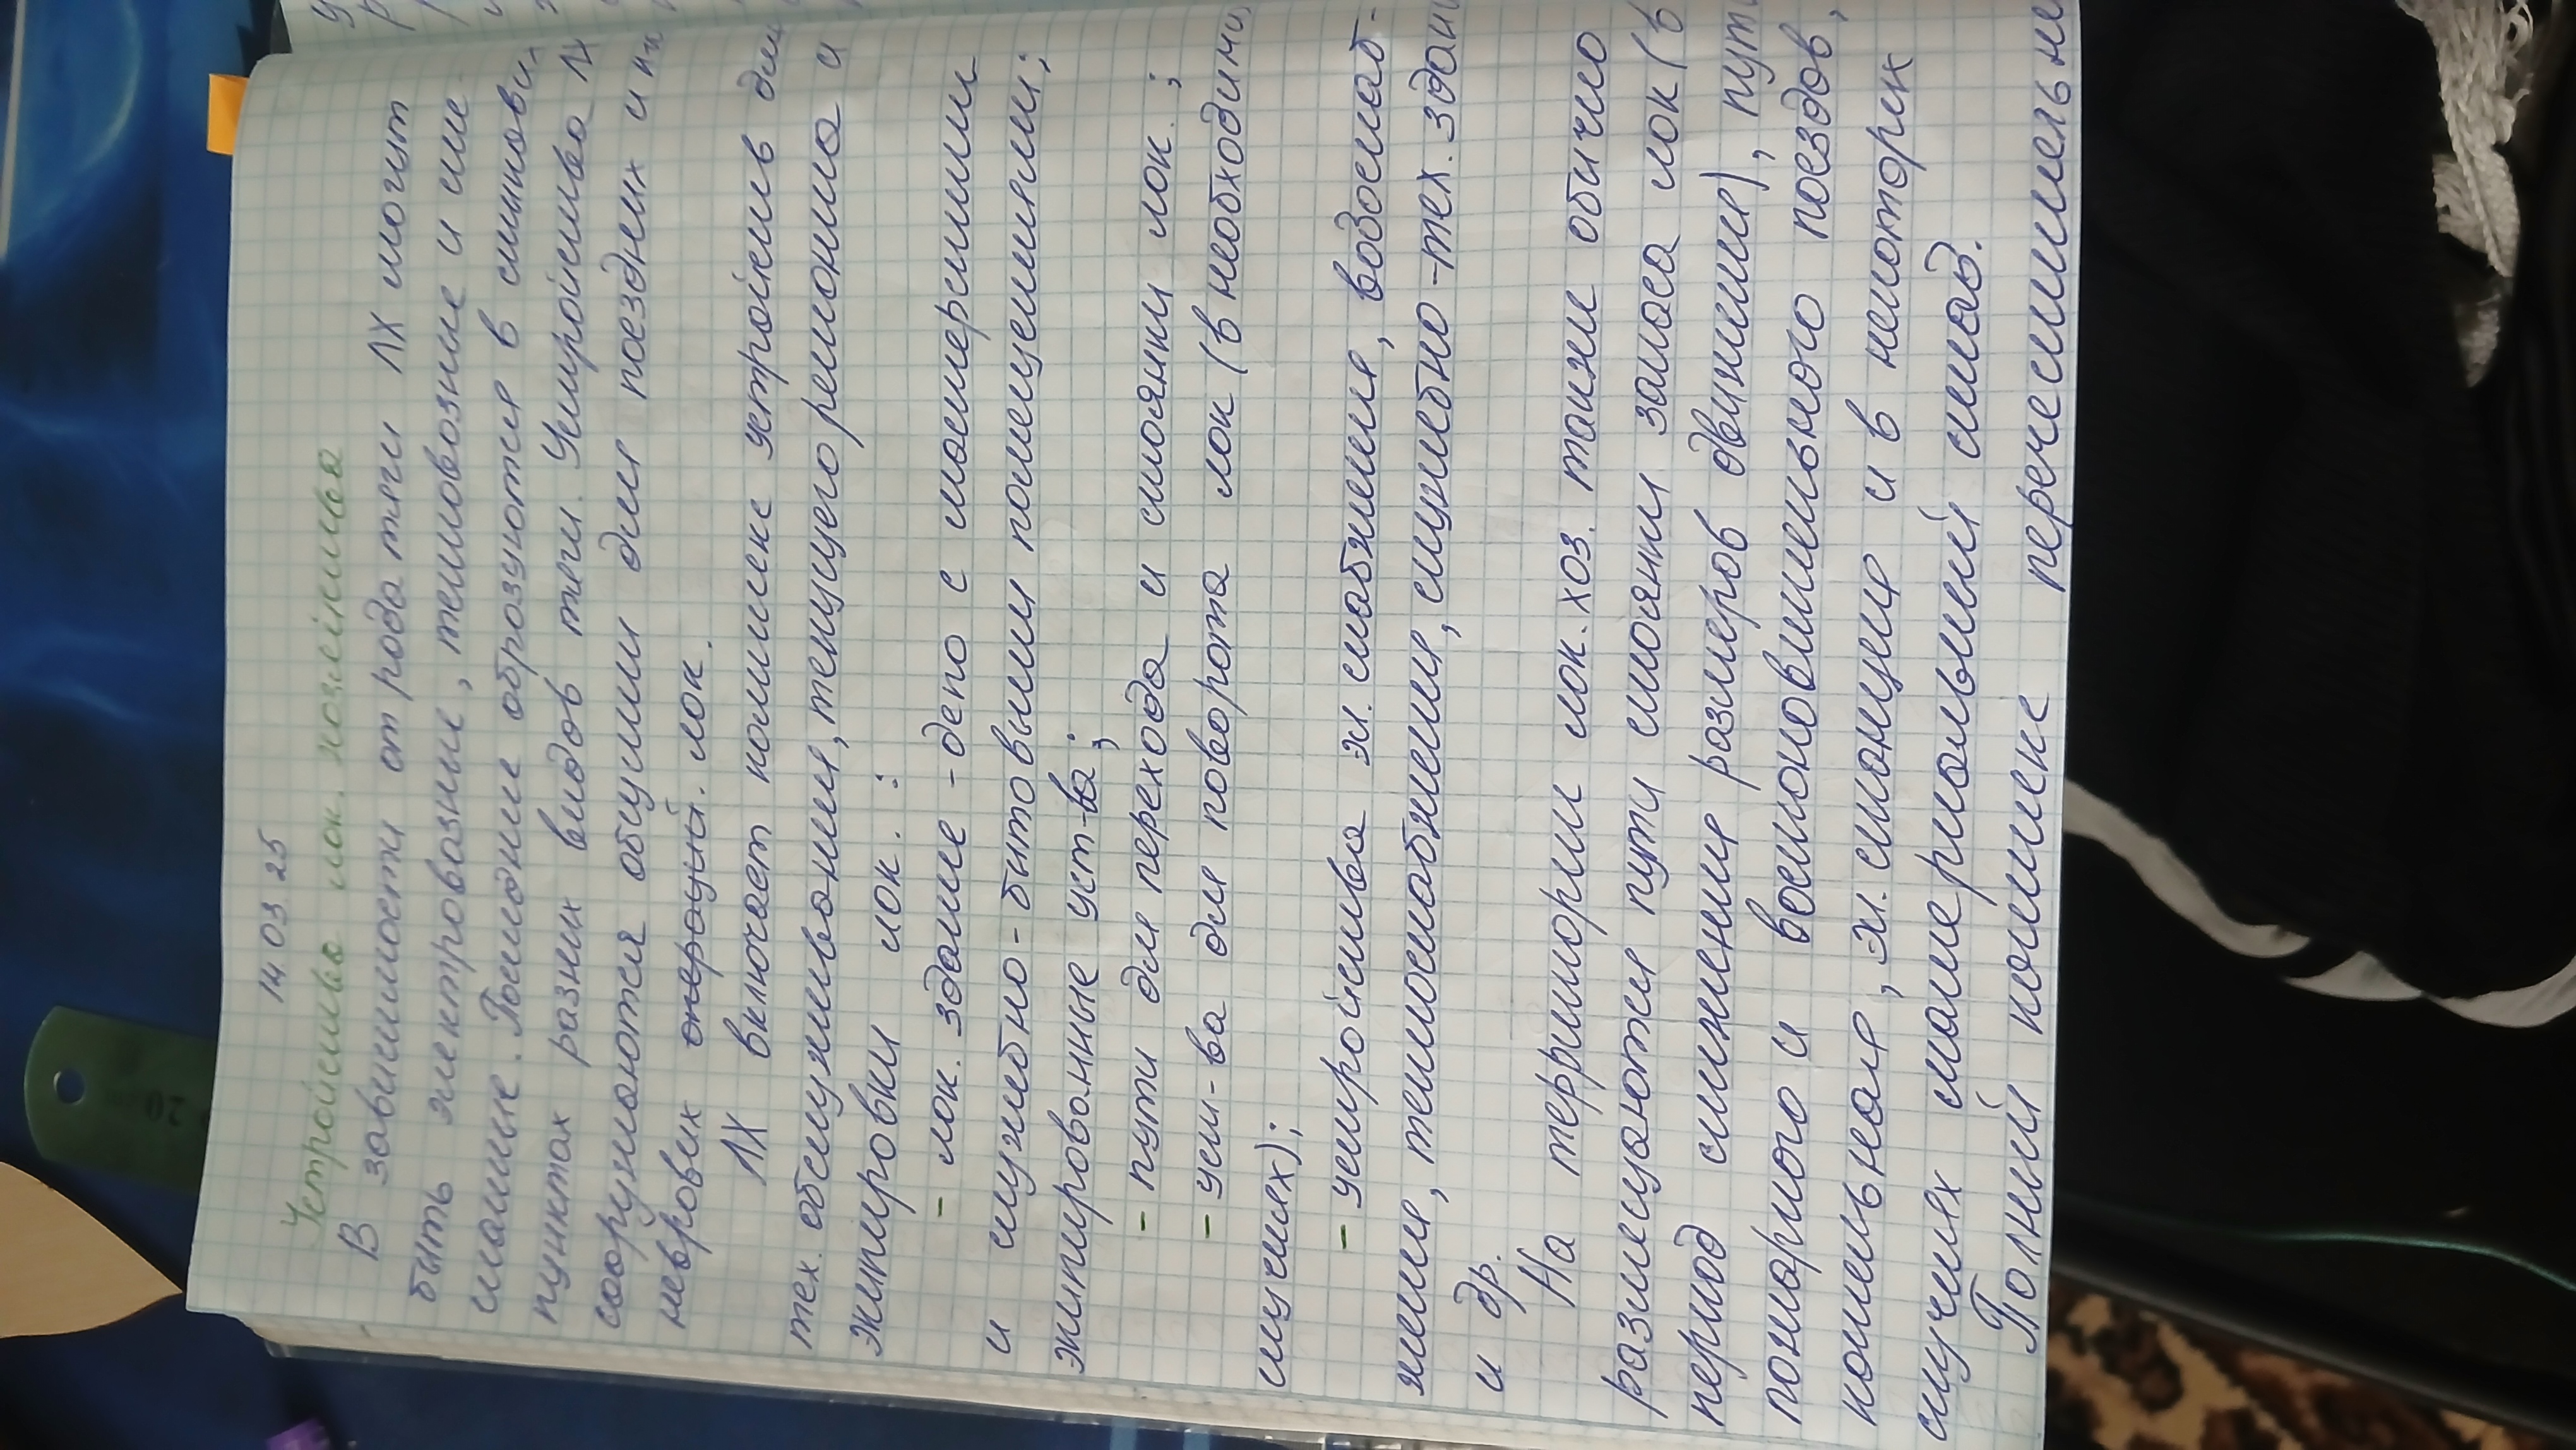 14.03.25
Устройство лок. хозяйства
В зависимости от рода тяги ЛХ могут
быть электровозные, тепловозные и сме-
шанные. Последние образуются в стыкови.
пунктах разных видов тяги. Устройства Л
сооружаются общими для поездных и
невровых лок.
ЛХ включает комплекс устройств для
тех. обслуживания, текущего ремонта и
экипировки лок. :
- лок. здание - депо с мастерскими
и служебно-бытовыми помещениями;
экипировочные уст-ва;
- пути для перехода и стоянки лок. ;
- уст-ва для поворота лок (в необходимы
случаях);
- устройства эл. снабжения, водоснаб-
жения, теплоснабжения, служебно-тех. здани
и др.
На территории лок. хоз. также обычно
размещаются пути стоянки запаса лок (в
период снижения размеров движения), пути
пожарного и восстановительного поездов,
котельная, эл. станция и в некоторых
случаях материальный склад.
Полный комплекс перечислительне